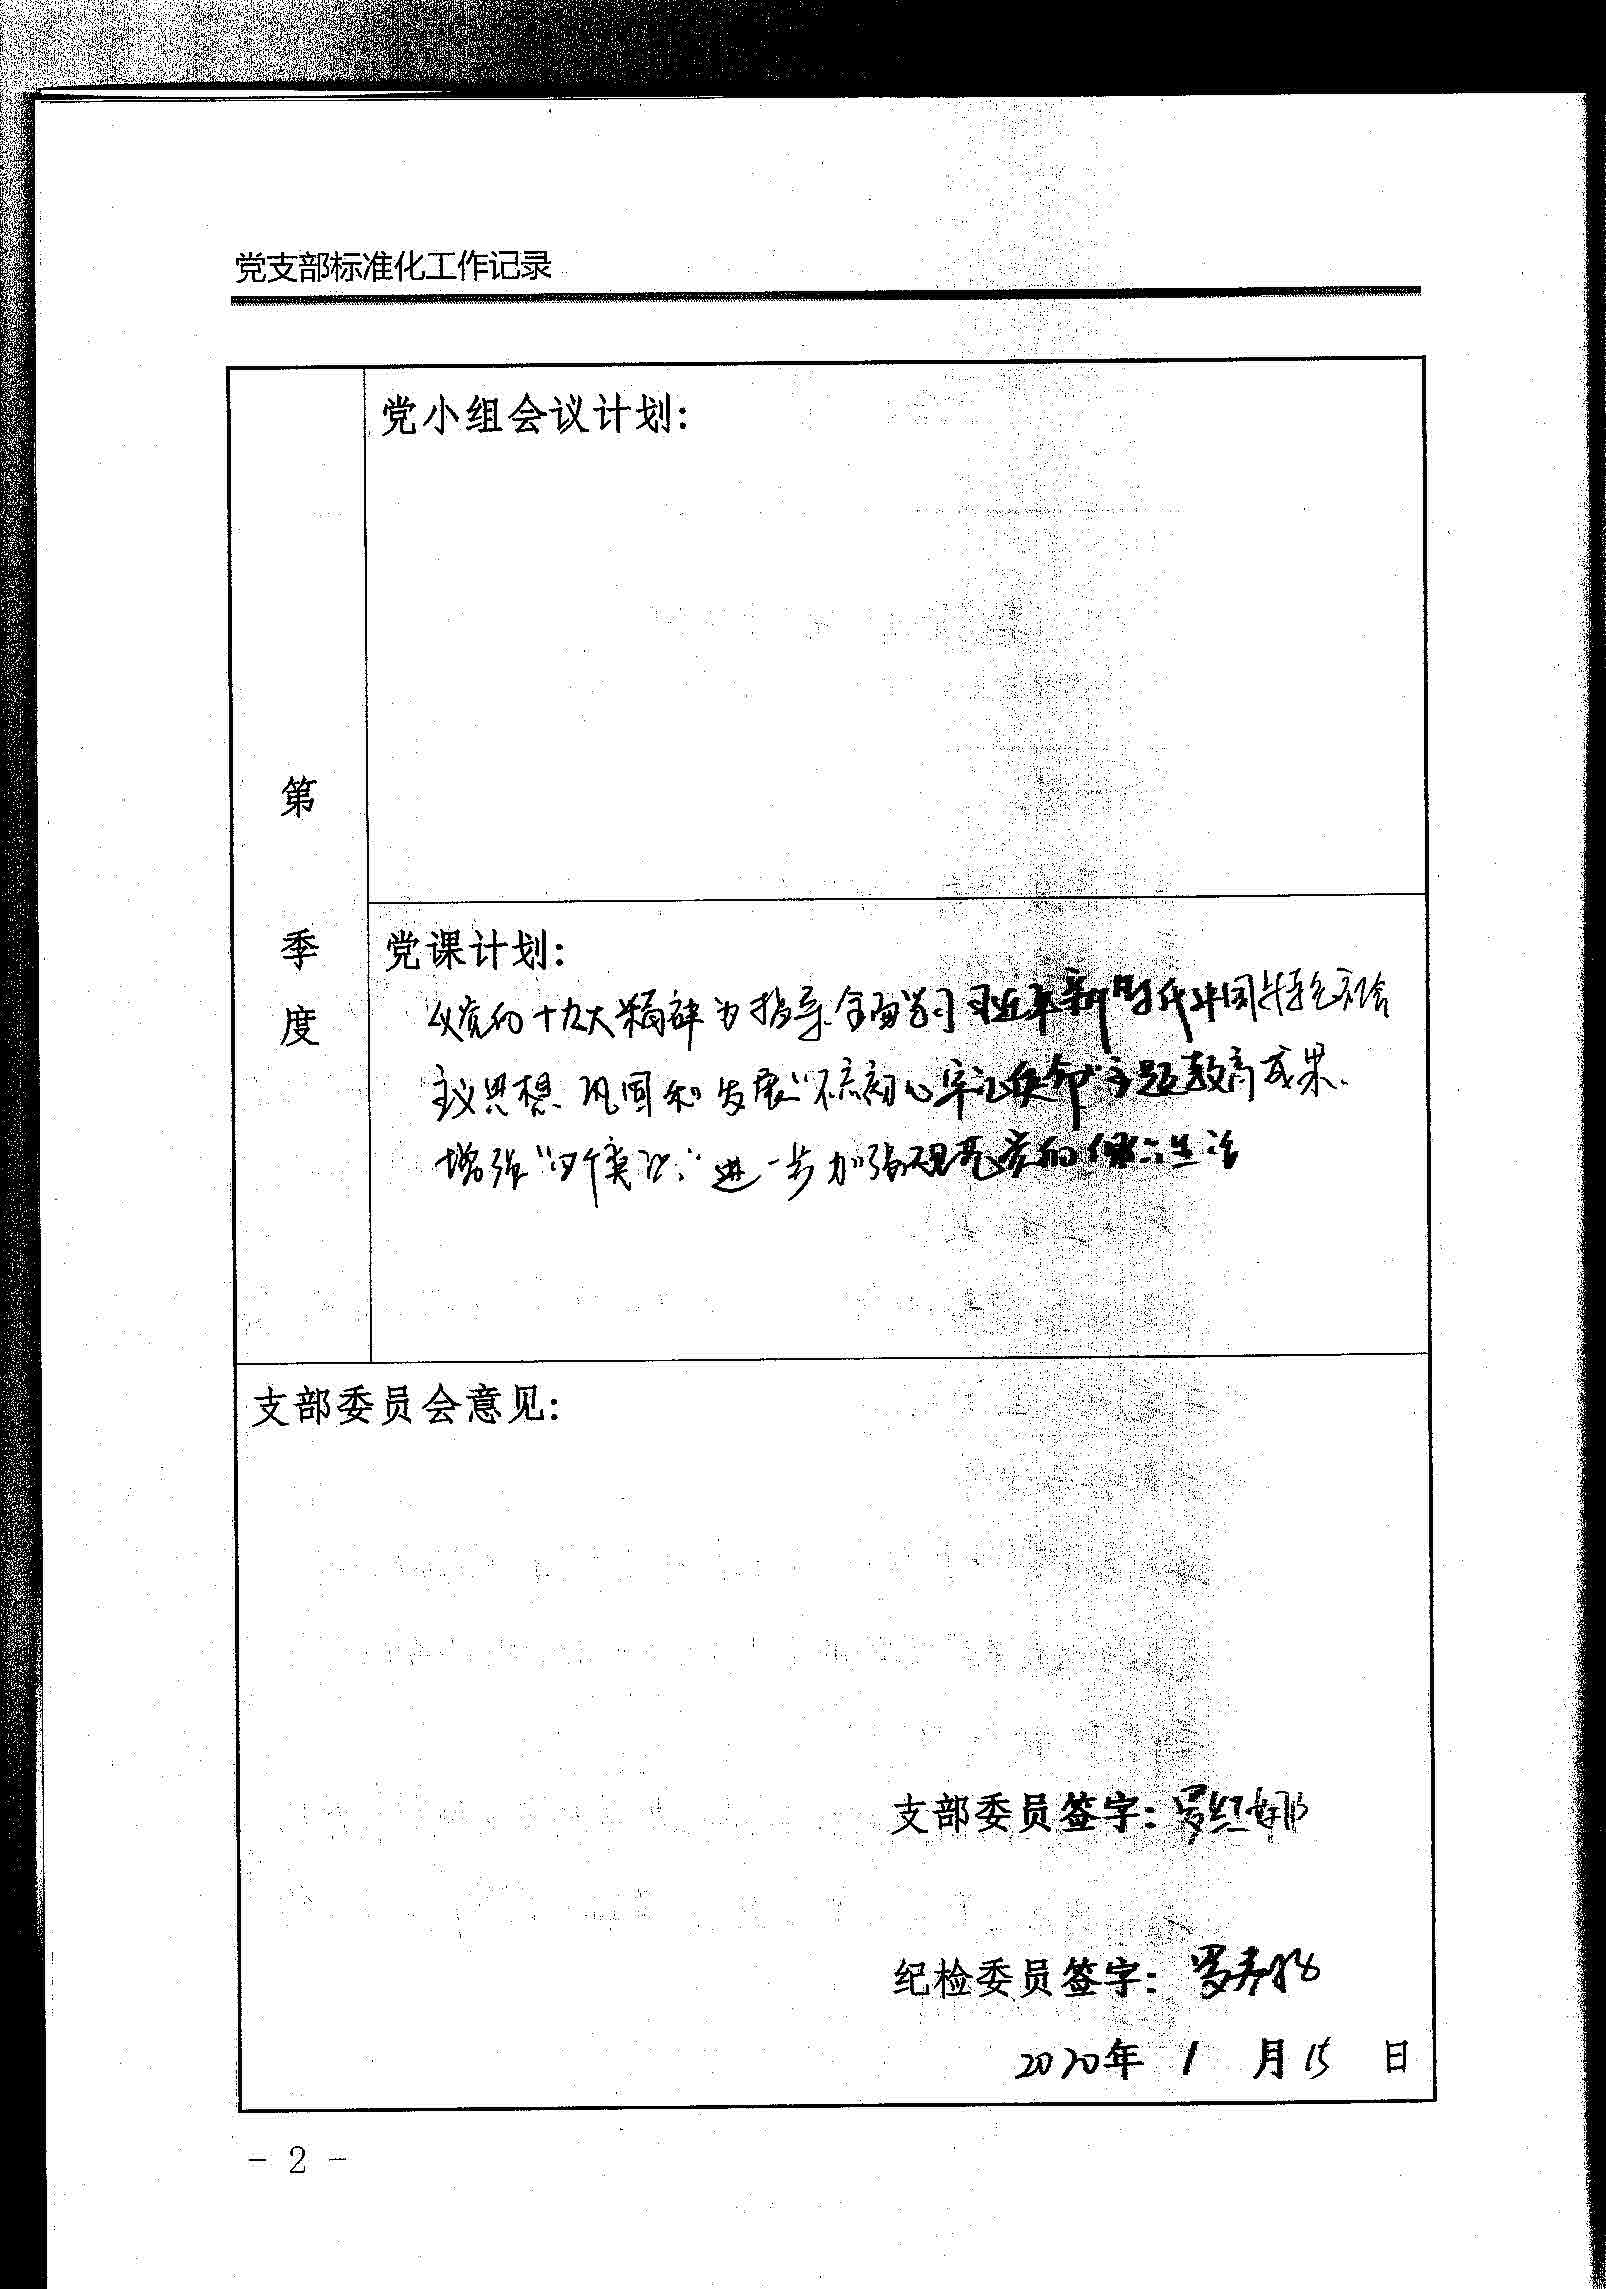 党支部标准化工作记录
党小组会议计划:
第
季
度
党课计划:
以党的十九大精神为指导.全面学习习近平新时代中国特色社会
主义思想.巩固和发展“不忘初心牢记使命”主题教育成果.
增强“四个意识”进一步加强规范党的政治生活
支部委员会意见:
支部委员签字: 罗红娜
纪检委员签字: 罗
2020年 1 月 15 日
- 2 -